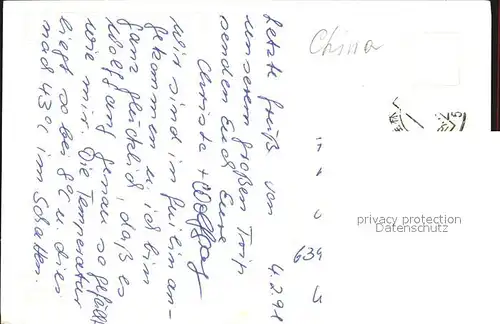 China
Letzte Grüß von
unserem großen Trip
senden Euch Eure
Christa + Wolfgang
Wir sind in Guilin an-
gekommen u. ich bin
ganz glücklich, daß es
Wolfgang genau so gefällt
wie mir. Die Temperatur
liegt so bei 8°C u. dies
nach 43°C im Schatten.
639
privacy protection
Datenschutz